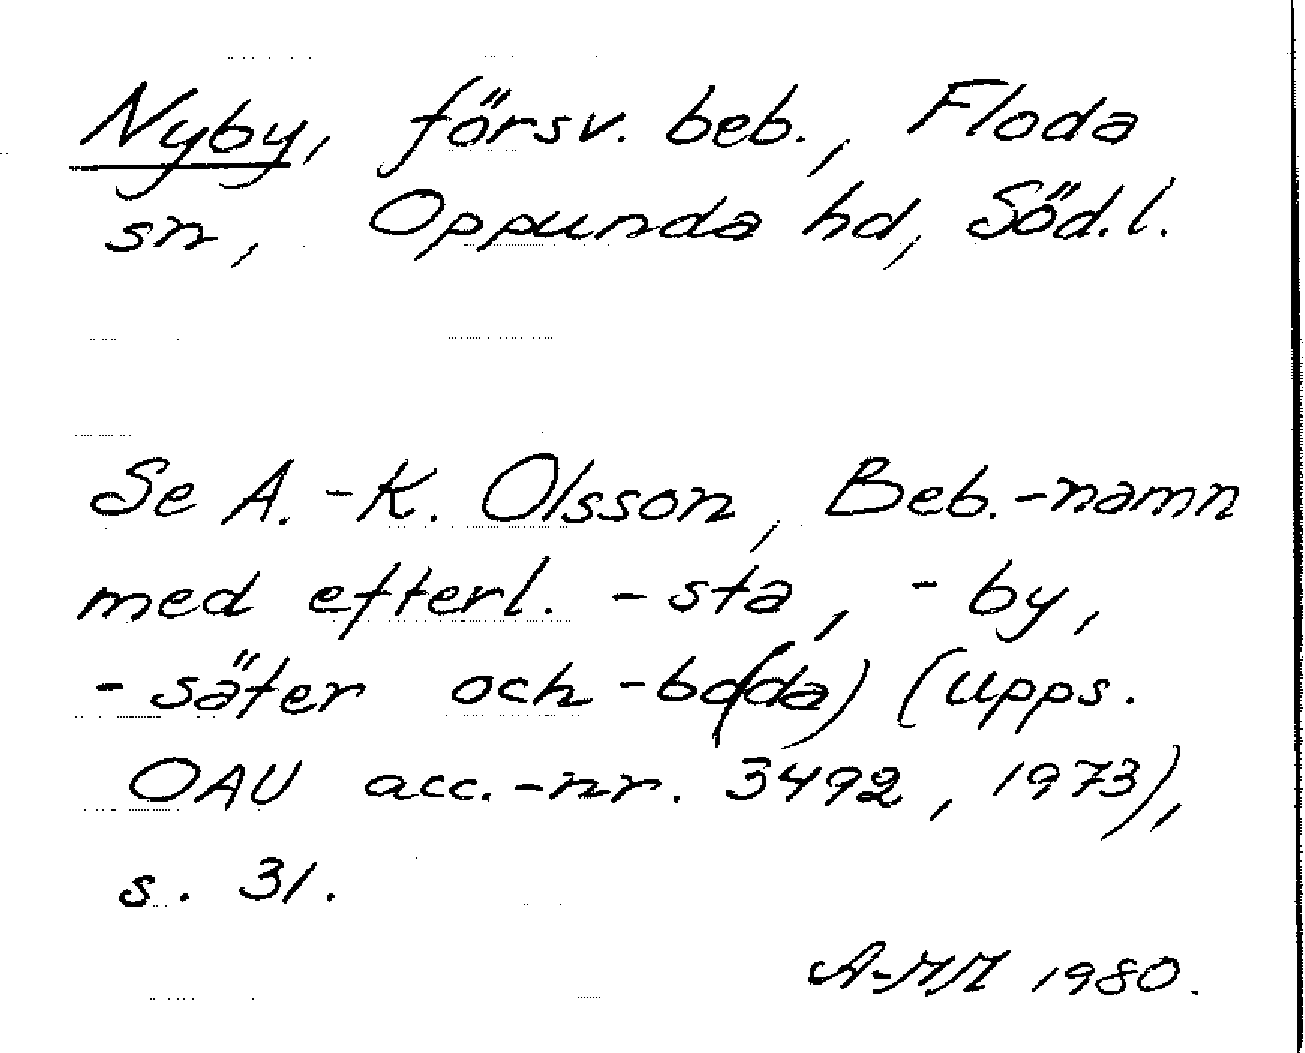 Nyby, försv. beb., Floda
sn, Oppunda hd, Söd.l.
Se A.-K. Olsson, Beb.-namn
med efterl. -sta, -by,
-säter och -bo(da) (Upps.
OAU acc.-nr. 3492, 1973),
s. 31.
A-MM 1980.